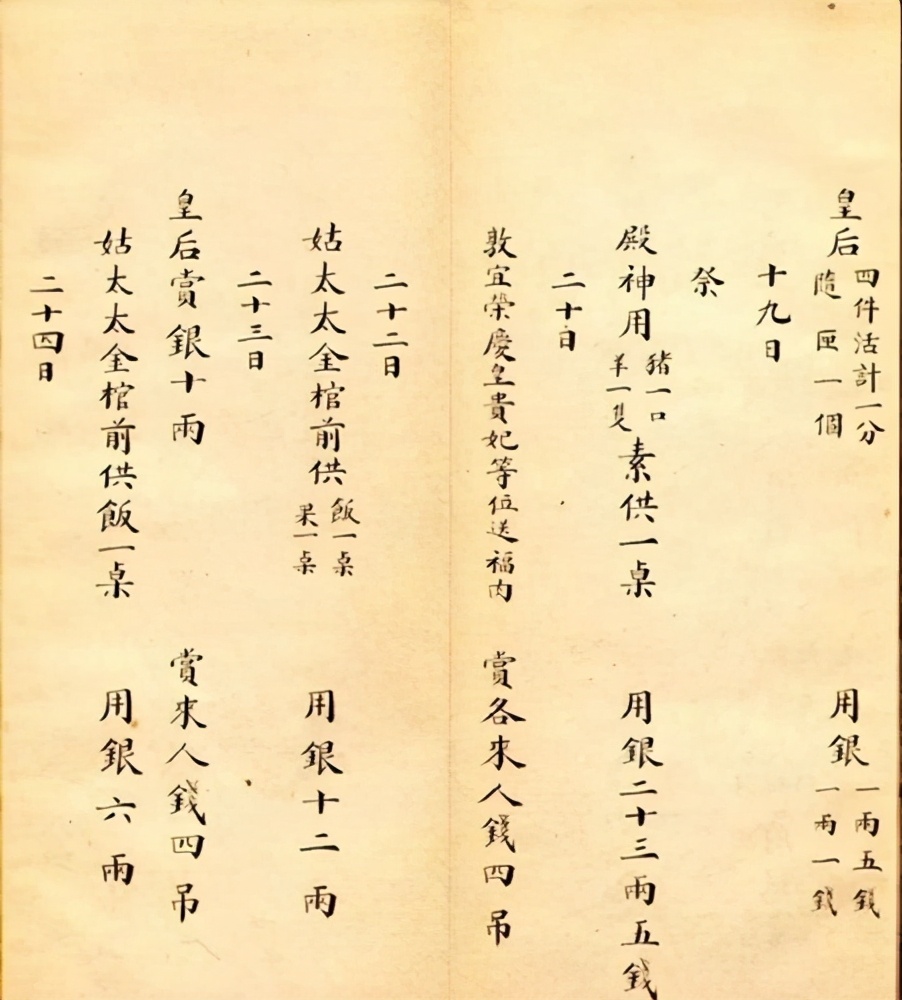 皇后四件活計一分隨匣一個 用銀一兩五錢一兩一錢
十九日
祭
殿神用豬一口羊一隻素供一桌 用銀二十三兩五錢
二十日
敦宜榮慶皇貴妃等位送福肉 賞各來人錢四吊
二十二日
姑太太金棺前供飯一桌果一桌 用銀十二兩
二十三日
皇后賞銀十兩 賞來人錢四吊
姑太太金棺前供飯一桌 用銀六兩
二十四日